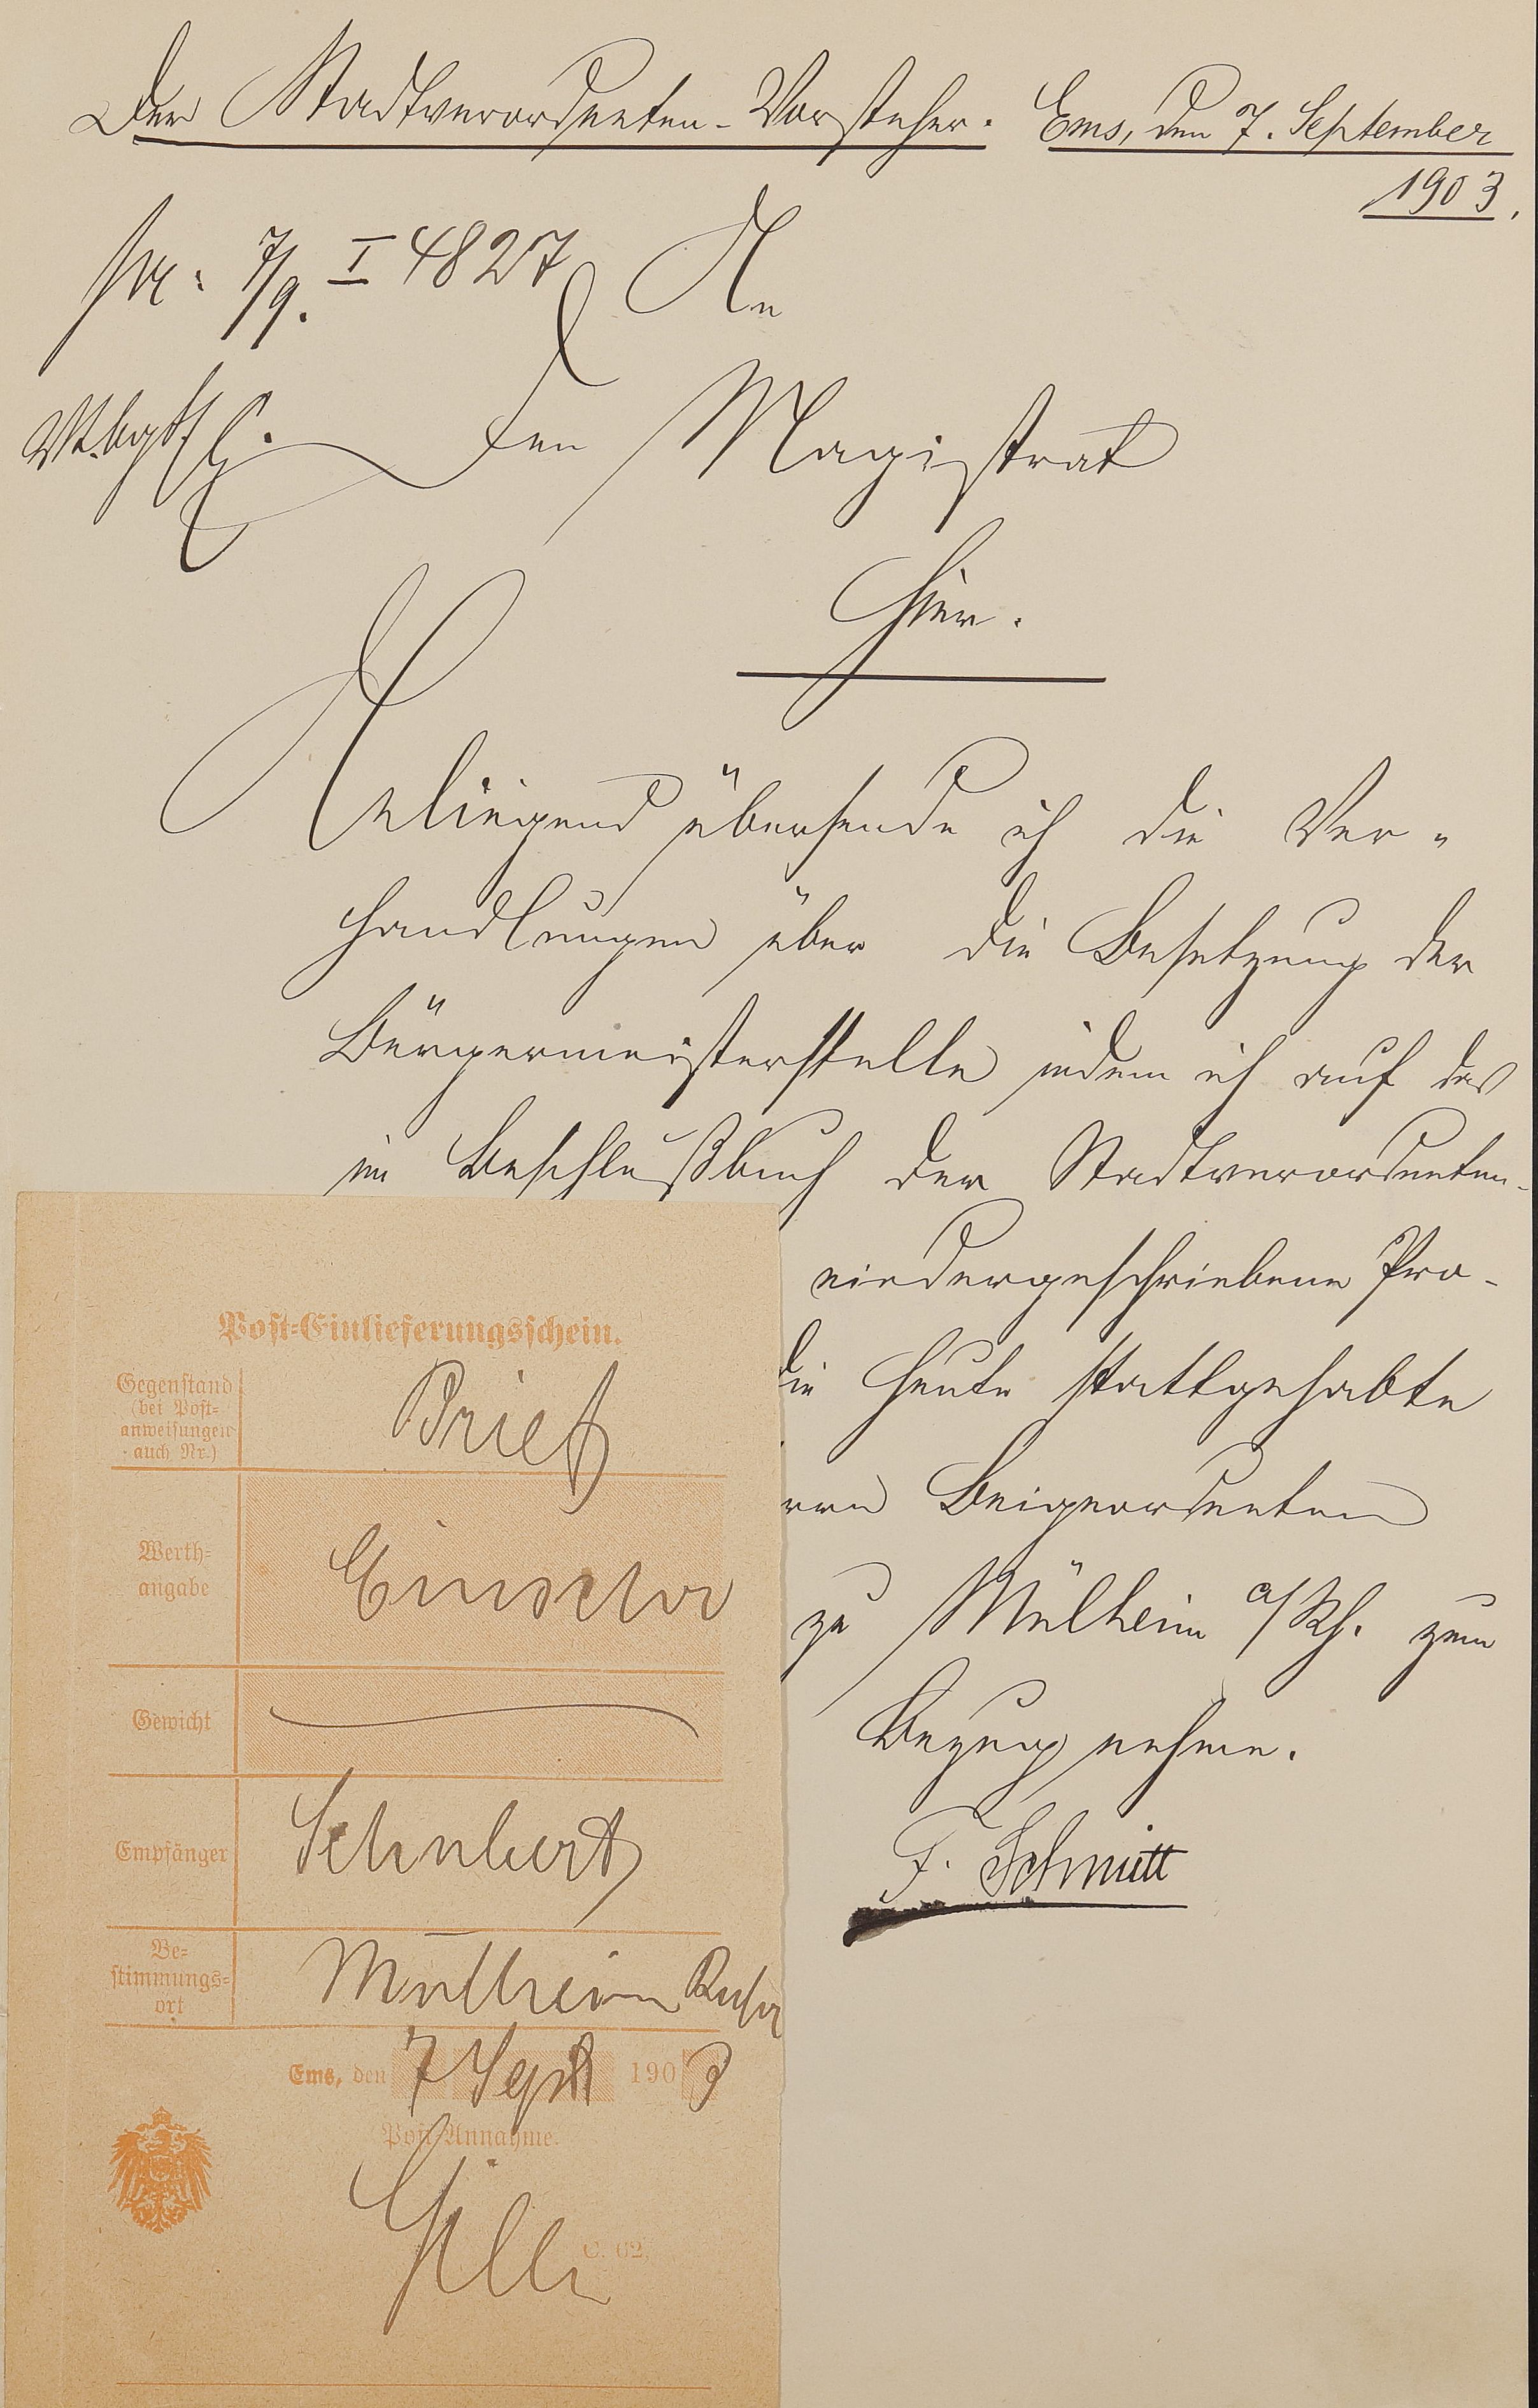 Der Stadtverordneten-Vorsteher. Ems, den 7. September
1903.
Pr. 7/9. I 4827
An
den Magistrat
Hier.
Anliegend übersende ich die Ver-
handlungen über die Besetzung der
Bürgermeisterstelle indem ich auf das
im Beschlußbuch der Stadtverordneten-
niedergeschriebene Pro-
die heute stattgehabte
Beigeordneten
zu Mülheim a/Rh. zum
Bezug nehme.
F. Schmitt
Post-Einlieferungsschein.
Gegenstand
(bei Post-
anweisungen
auch Nr.)
Brief
Werth-
angabe
Einschr
Gewicht
Empfänger
Schubert
Be-
stimmungs-
ort
Mülheim Ruhr
Ems, den 7 Sept 1903
Post-Annahme.
C. 62.